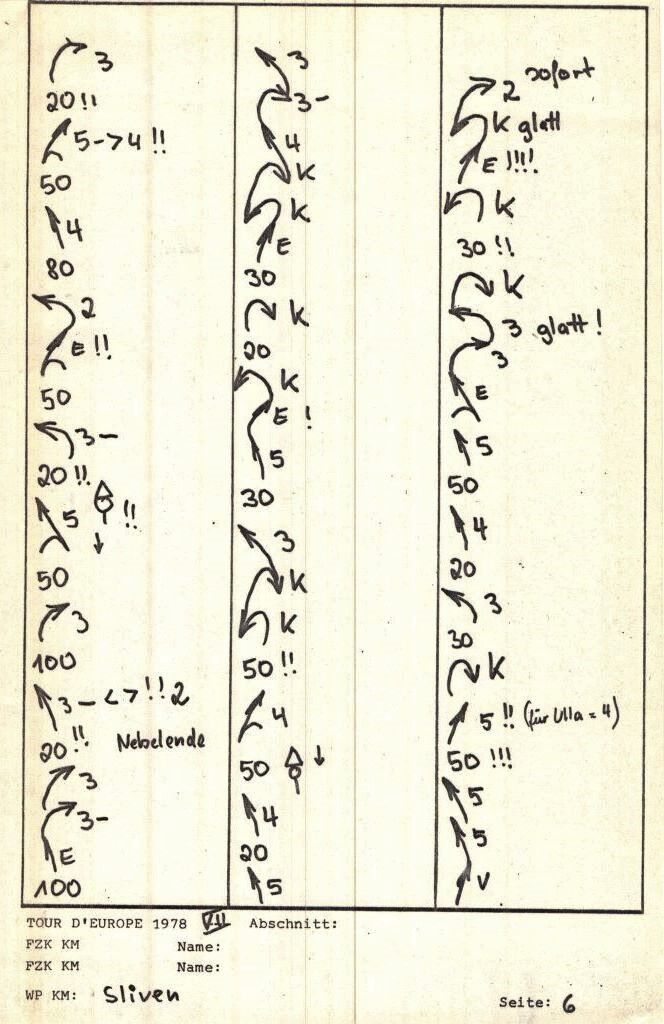 3
20!!
5->4 !!
50
4
80
2
E!!
50
3-
20!!
5 !!
50
3
100
3- <> !! 2
20!! Nebelende
3
3-
E
100
3
3-
4
K
K
E
30
K
20
K
E !
5
30
3
K
K
50!!
4
50
4
20
5
2 sofort
K glatt
E !!!!
K
30 !!
K
3 glatt!
3
E
5
50
4
20
3
30
K
5 !! (für Ulla = 4)
50 !!!
5
5
V
TOUR D'EUROPE 1978 VII Abschnitt:
FZK KM Name:
FZK KM Name:
WP KM: Sliven
Seite: 6